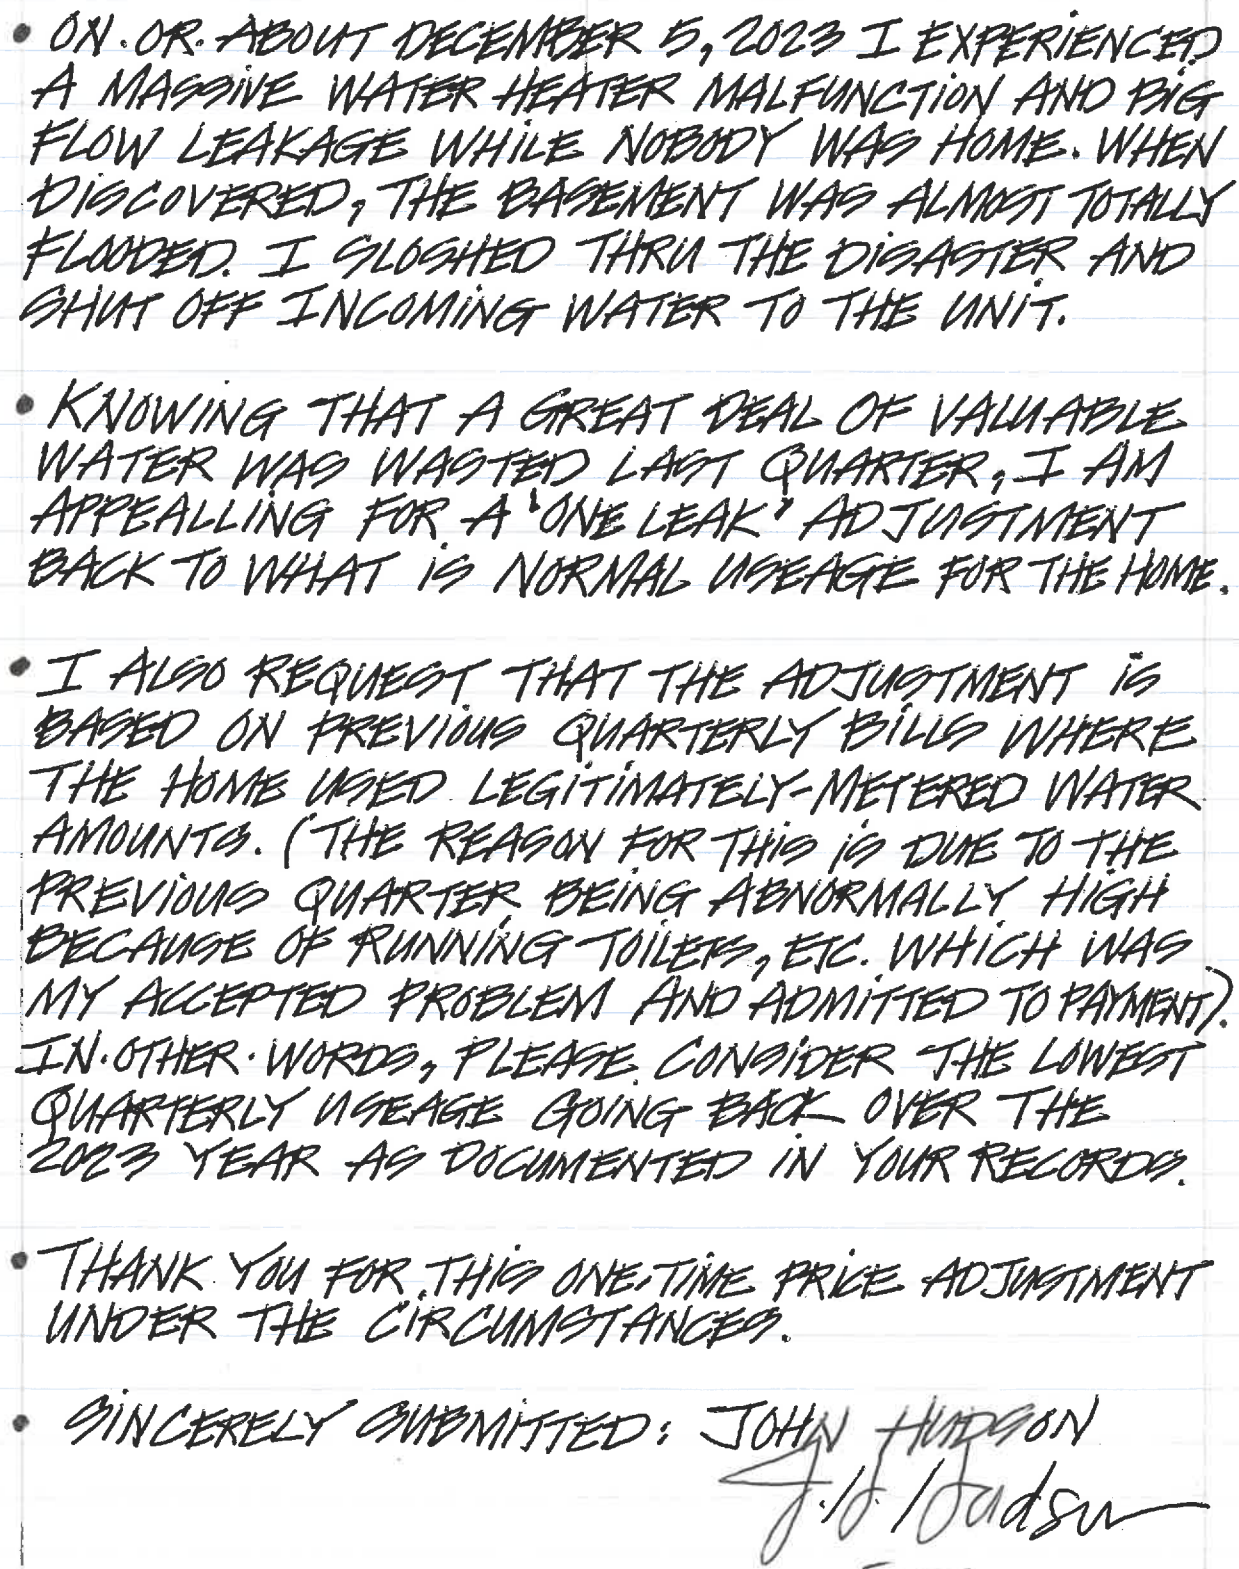 • ON·OR·ABOUT DECEMBER 5, 2023 I EXPERIENCED
A MASSIVE WATER HEATER MALFUNCTION AND BIG
FLOW LEAKAGE WHILE NOBODY WAS HOME. WHEN
DISCOVERED, THE BASEMENT WAS ALMOST TOTALLY
FLOODED. I SLOSHED THRU THE DISASTER AND
SHUT OFF INCOMING WATER TO THE UNIT.
• KNOWING THAT A GREAT DEAL OF VALUABLE
WATER WAS WASTED LAST QUARTER, I AM
APPEALLING FOR A 'ONE LEAK' ADJUSTMENT
BACK TO WHAT IS NORMAL USEAGE FOR THE HOME.
• I ALSO REQUEST THAT THE ADJUSTMENT IS
BASED ON PREVIOUS QUARTERLY BILLS WHERE
THE HOME USED LEGITIMATELY-METERED WATER
AMOUNTS. (THE REASON FOR THIS IS DUE TO THE
PREVIOUS QUARTER BEING ABNORMALLY HIGH
BECAUSE OF RUNNING TOILETS, ETC. WHICH WAS
MY ACCEPTED PROBLEM AND ADMITTED TO PAYMENT).
IN·OTHER·WORDS, PLEASE CONSIDER THE LOWEST
QUARTERLY USEAGE GOING BACK OVER THE
2023 YEAR AS DOCUMENTED IN YOUR RECORDS.
• THANK YOU FOR THIS ONE-TIME PRICE ADJUSTMENT
UNDER THE CIRCUMSTANCES.
• SINCERELY SUBMITTED: JOHN HUDSON
J. J. Hudson